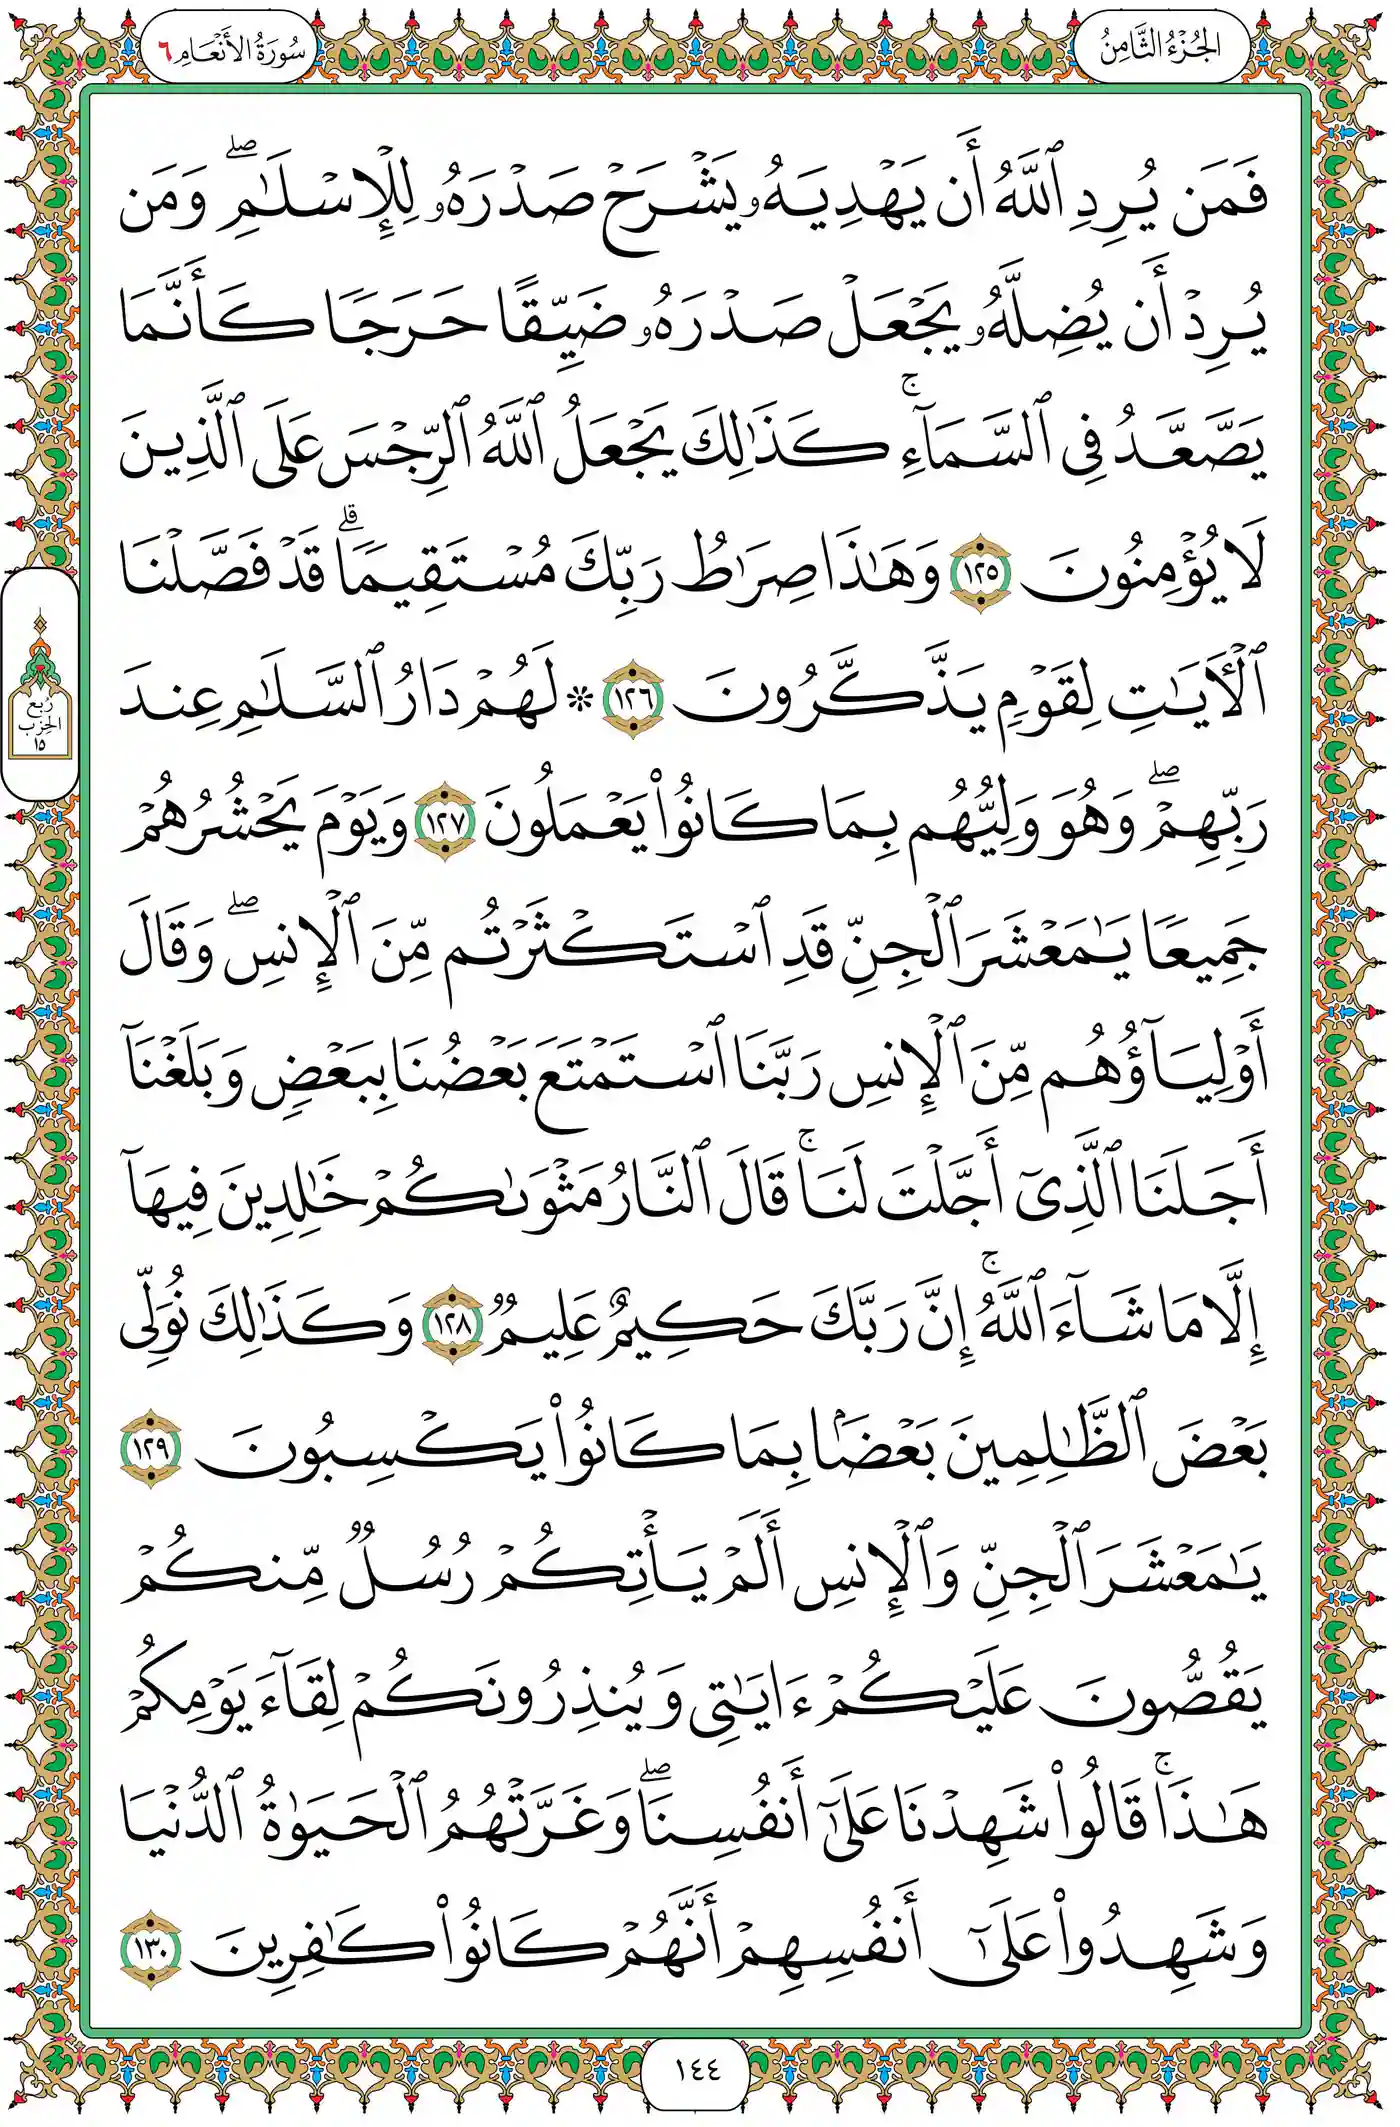 الجُزْءُ الثَّامِنُ
سُورَةُ الأَنْعَامِ ٦
فَمَن يُرِدِ ٱللَّهُ أَن يَهْدِيَهُۥ يَشْرَحْ صَدْرَهُۥ لِلْإِسْلَٰمِ ۖ وَمَن
يُرِدْ أَن يُضِلَّهُۥ يَجْعَلْ صَدْرَهُۥ ضَيِّقًا حَرَجًا كَأَنَّمَا
يَصَّعَّدُ فِى ٱلسَّمَآءِ ۚ كَذَٰلِكَ يَجْعَلُ ٱللَّهُ ٱلرِّجْسَ عَلَى ٱلَّذِينَ
لَا يُؤْمِنُونَ ١٢٥ وَهَٰذَا صِرَٰطُ رَبِّكَ مُسْتَقِيمًا ۗ قَدْ فَصَّلْنَا
ٱلْءَايَٰتِ لِقَوْمٍ يَذَّكَّرُونَ ١٢٦ * لَهُمْ دَارُ ٱلسَّلَٰمِ عِندَ
رَبِّهِمْ ۖ وَهُوَ وَلِيُّهُم بِمَا كَانُوا۟ يَعْمَلُونَ ١٢٧ وَيَوْمَ يَحْشُرُهُمْ
جَمِيعًا يَٰمَعْشَرَ ٱلْجِنِّ قَدِ ٱسْتَكْثَرْتُم مِّنَ ٱلْإِنسِ ۖ وَقَالَ
أَوْلِيَآؤُهُم مِّنَ ٱلْإِنسِ رَبَّنَا ٱسْتَمْتَعَ بَعْضُنَا بِبَعْضٍ وَبَلَغْنَآ
أَجَلَنَا ٱلَّذِىٓ أَجَّلْتَ لَنَا ۚ قَالَ ٱلنَّارُ مَثْوَىٰكُمْ خَٰلِدِينَ فِيهَآ
إِلَّا مَا شَآءَ ٱللَّهُ ۚ إِنَّ رَبَّكَ حَكِيمٌ عَلِيمٌ ١٢٨ وَكَذَٰلِكَ نُوَلِّى
بَعْضَ ٱلظَّٰلِمِينَ بَعْضًۢا بِمَا كَانُوا۟ يَكْسِبُونَ ١٢٩
يَٰمَعْشَرَ ٱلْجِنِّ وَٱلْإِنسِ أَلَمْ يَأْتِكُمْ رُسُلٌ مِّنكُمْ
يَقُصُّونَ عَلَيْكُمْ ءَايَٰتِى وَيُنذِرُونَكُمْ لِقَآءَ يَوْمِكُمْ
هَٰذَا ۚ قَالُوا۟ شَهِدْنَا عَلَىٰٓ أَنفُسِنَا ۖ وَغَرَّتْهُمُ ٱلْحَيَوٰةُ ٱلدُّنْيَا
وَشَهِدُوا۟ عَلَىٰٓ أَنفُسِهِمْ أَنَّهُمْ كَانُوا۟ كَٰفِرِينَ ١٣٠
رُبْع
الحِزْب
١٥
١٤٤